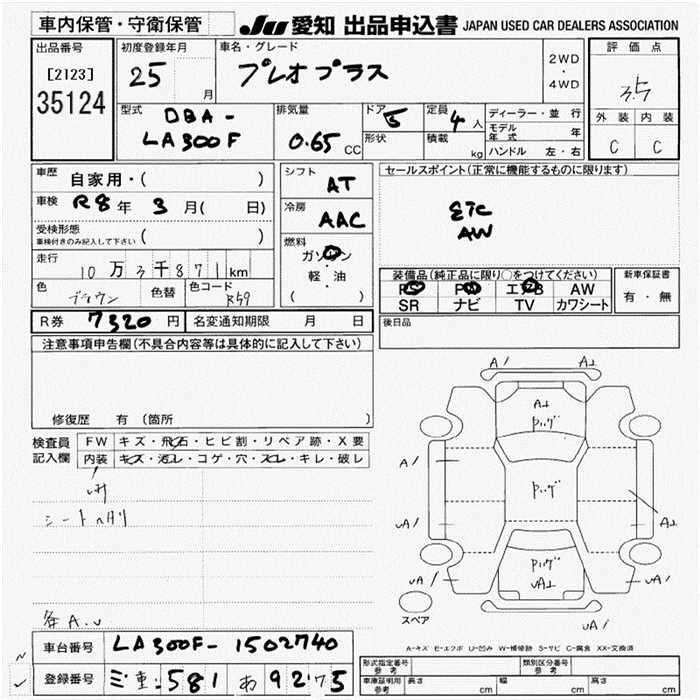 車内保管・守衛保管
JU 愛知 出品申込書 JAPAN USED CAR DEALERS ASSOCIATION
出品番号
[2123]
35124
初度登録年月
25 月
車名・グレード
プレオプラス
2WD
・
4WD
評価点
3.5
外装 内装
C C
型式
DBA-
LA300F
排気量
0.65 CC
ドア 5
形状
定員 4 人
積載 kg
ディーラー・並行
モデル年式 年
ハンドル 左・右
車歴 自家用・( )
車検 R8年 3月( 日)
受検形態
車検付きのみ記入して下さい ( )
走行
10万3千871km
色 ブラウン
色替
色コード R59
シフト
AT
冷房
AAC
燃料
ガソリン
・
軽・油
( )
セールスポイント(正常に機能するものに限ります)
ETC
AW
装備品(純正品に限り○をつけてください)
PS PW エアB AW
SR ナビ TV カワシート
新車保証書
有・無
R券 7320 円
名変通知期限 月 日
後日品
注意事項申告欄(不具合内容等は具体的に記入して下さい)
修復歴 有 (箇所 )
検査員記入欄
FW キズ・飛石・ヒビ割・リペア跡・X要
内装 キズ・汚レ・コゲ・穴・スレ・キレ・破レ
シートヘタリ
各A.U
A1 A⊥
A⊥
Pハゲ
A1
Pハゲ
UA1 A⊥
Pハゲ
UA⊥
UA1 UA1
スペア
UA1
A-キズ E-エクボ U-凹み W-補修跡 S-サビ C-腐食 XX-交換済
車台番号 LA300F-1502740
登録番号 三重 581 わ 9275
形式指定番号
参考
類別区分番号
参考
車庫証明用
参考
長さ cm
幅 cm
高さ cm